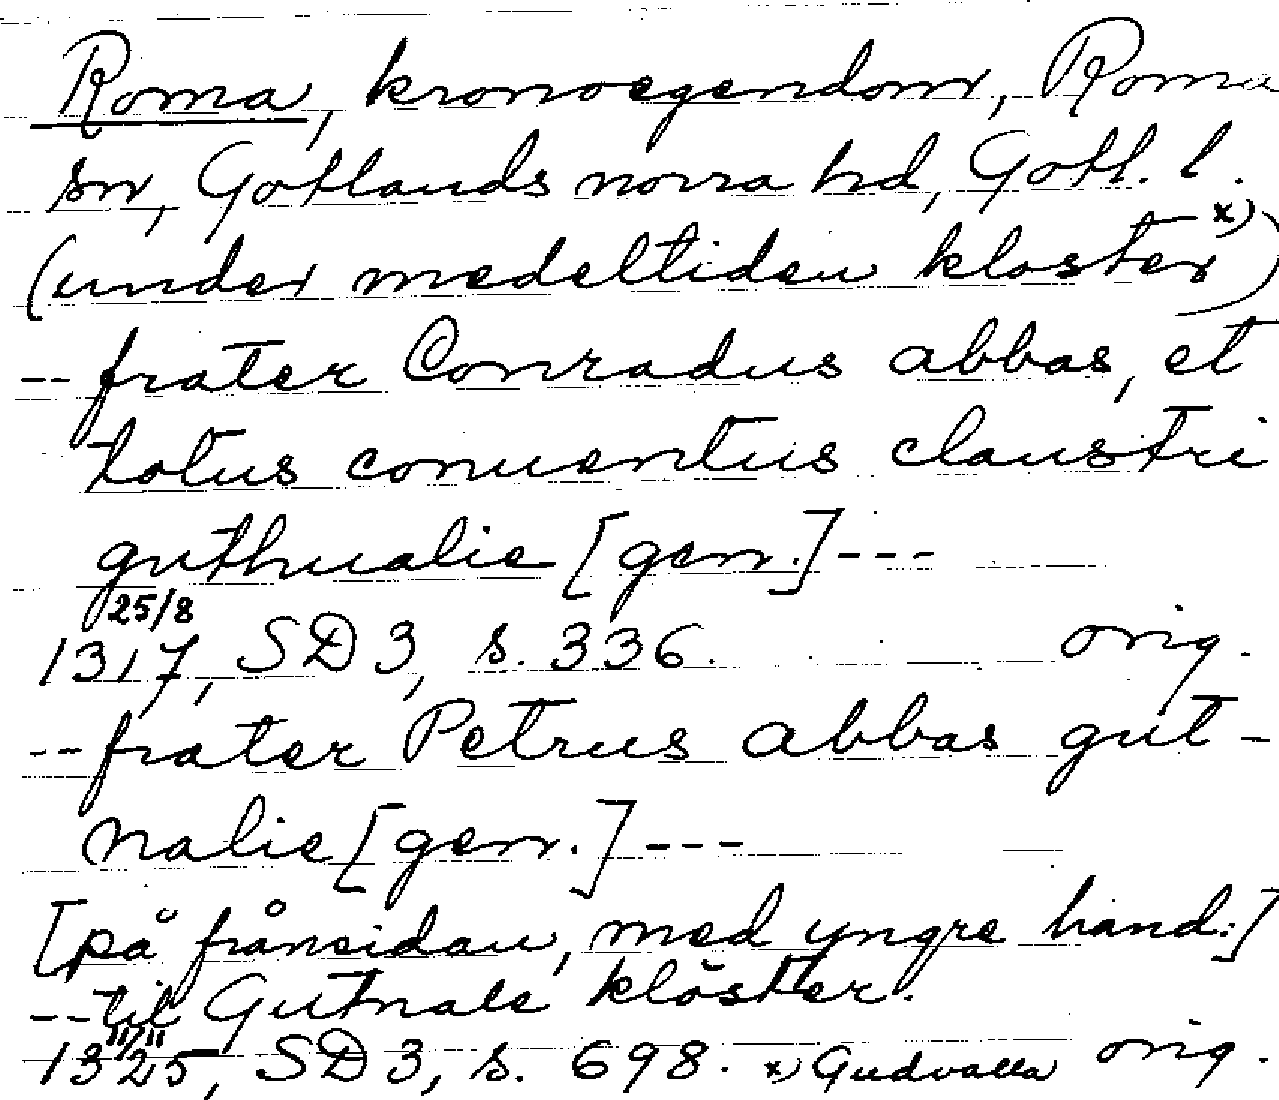 Roma, kronoegendom, Roma
sn, Gotlands norra hd, Gotl. l.
(under medeltiden kloster x))
--frater Conradus abbas, et
totus conuentus claustri
guthualie [gen.]---
25/8
1317, SD 3, s. 336. orig.
--frater Petrus abbas gut-
nalie [gen.]---
[på frånsidan, med yngre hand:]
--til Gutnale klöster.
11/11
1325, SD 3, s. 698. x) Gudvalla orig.